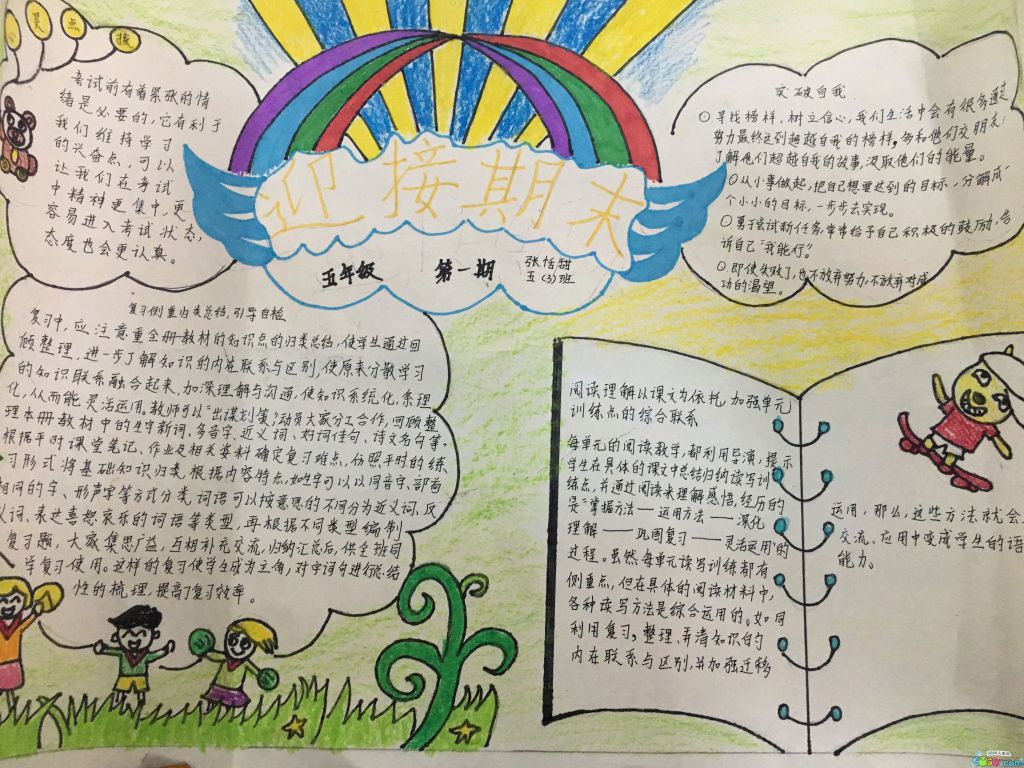 灵点拨
考试前有着紧张的情
绪是必要的,它有利于
我们维持学习
的兴奋点,可以
让我们在考试
中精神更集中,更
容易进入考试状态,
态度也会更认真。
迎接期末
五年级 第一期
张恬甜
五(3)班
突破自我
寻找榜样、树立信心,我们生活中会有很多通过
努力最终达到超越自我的榜样,多和他们交朋友,
了解他们超越自我的故事,汲取他们的能量。
从小事做起,把自己想要达到的目标,分解成一
个小小的目标,一步步去实现。
勇于尝试新任务,常常给予自己积极的鼓励,告
诉自己“我能行”。
即使失败了,也不放弃努力,不放弃对成
功的渴望。
复习侧重归类总结,引导自检
复习中,应注意重全册教材的知识点的归类总结,使学生通过回
顾整理,进一步了解知识的内在联系与区别,使原来分散学习
的知识联系融合起来,加深理解与沟通,使知识系统化,条理
化,从而能灵活运用。教师可以“出谋划策”,动员大家分工合作,回顾整
理本册教材中的生字新词、多音字、近义词、好词佳句、诗文名句等。
根据平时课堂笔记、作业及相关资料确定复习难点,仿照平时的练
习形式将基础知识归类,根据内容特点,如生字可以以同音字、部首
相同的字、形声字等方式分类,词语可以按意思的不同分为近义词、反
义词、表达喜怒哀乐的词语等类型,再根据不同类型编制
复习题,大家集思广益,互相补充交流,归纳汇总后,供全班同
学复习使用。这样的复习使学生成为主角,对字词句进行总结
性的梳理,提高了复习效率。
阅读理解以课文为依托,加强单元
训练点的综合联系
每单元的阅读教学,都利用导演,提示
学生在具体的课文中总结归纳读写训
练点,并通过阅读来理解感悟,经历的
是“掌握方法——运用方法——深化
理解——巩固复习——灵活运用”的
过程。虽然每单元读写训练都有
侧重点,但在具体的阅读材料中,
各种读写方法是综合运用的。如同
利用复习,整理、弄清知识的
内在联系与区别,并加强迁移
运用,那么,这些方法就会
交流、应用中变成学生的语
能力。